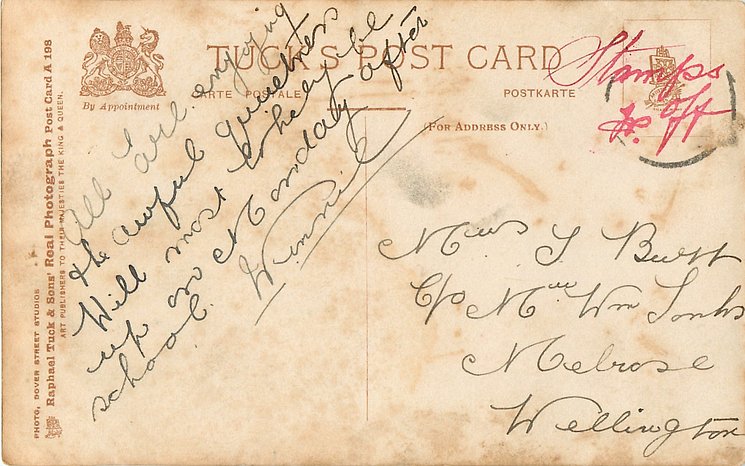 TUCK'S POST CARD
CARTE POSTALE
POSTKARTE
(FOR ADDRESS ONLY.)
By Appointment
PHOTO, DOVER STREET STUDIOS
Raphael Tuck & Sons' Real Photograph Post Card A 198
ART PUBLISHERS TO THEIR MAJESTIES THE KING & QUEEN.
Stamps
off
All are enjoying
the awful quietness
Will most likely be
up on Monday after
school.
Winnie
Miss I Butt
C/o Mrs Wm
Melrose
Wellington